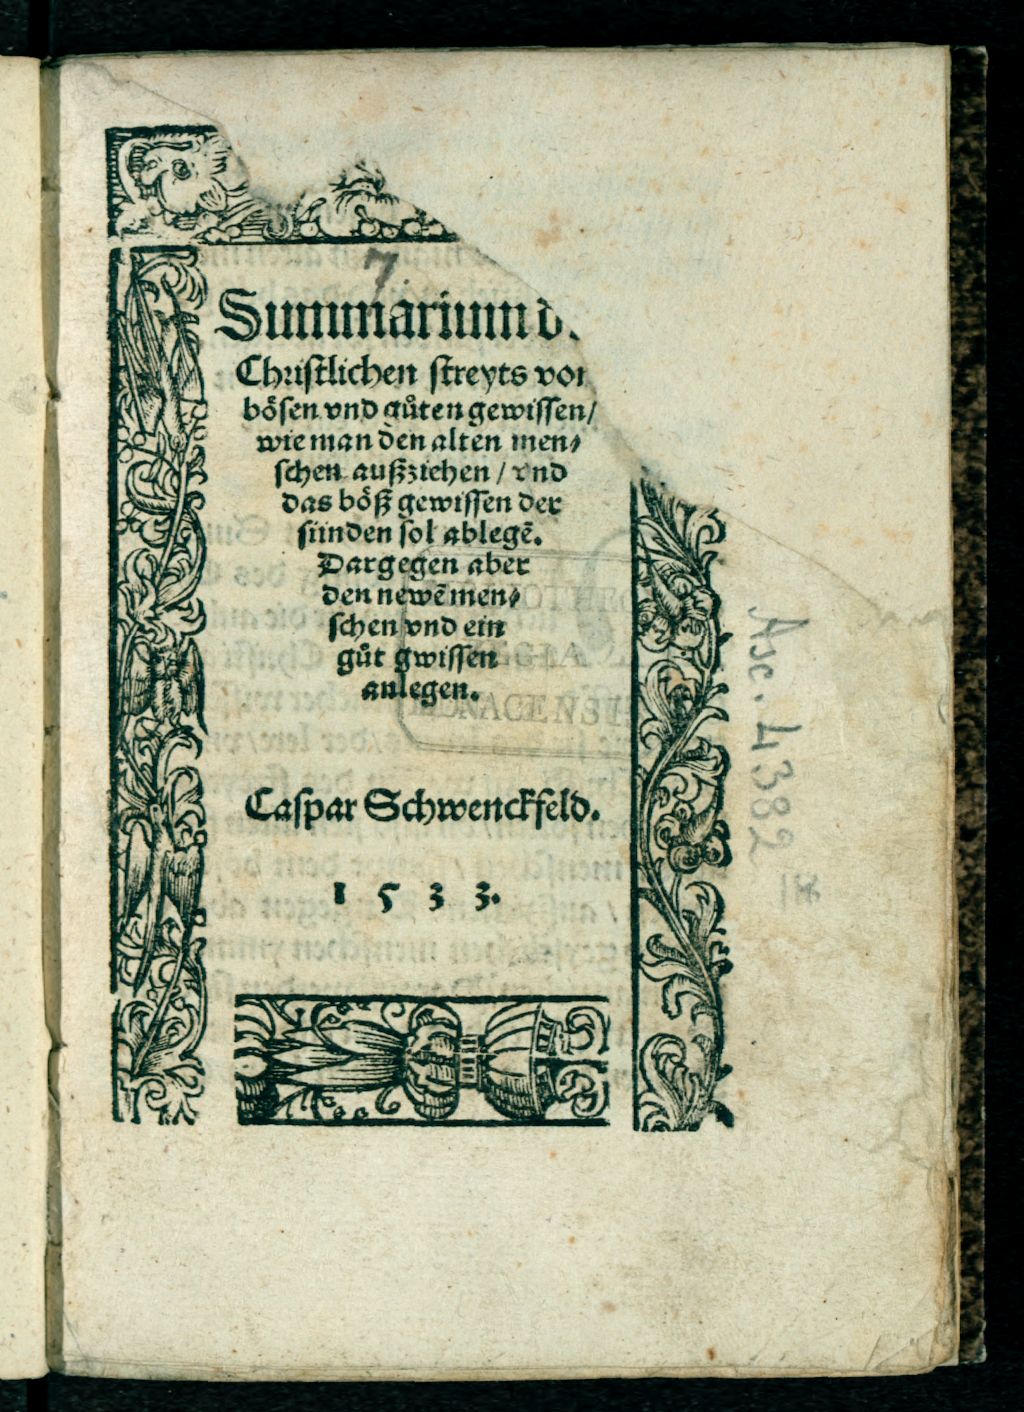 7
Summarium d
Christlichen streyts
bösen vnd gůten gewissen/
wie man den alten men⸗
schen außziehen / vnd
das böß gewissen der
sünden sol ablegẽ.
Dargegen aber
den newẽ men⸗
schen vnd ein
gůt gwissen
anlegen.
Caspar Schwenckfeld.
1533.
Asc. 4382